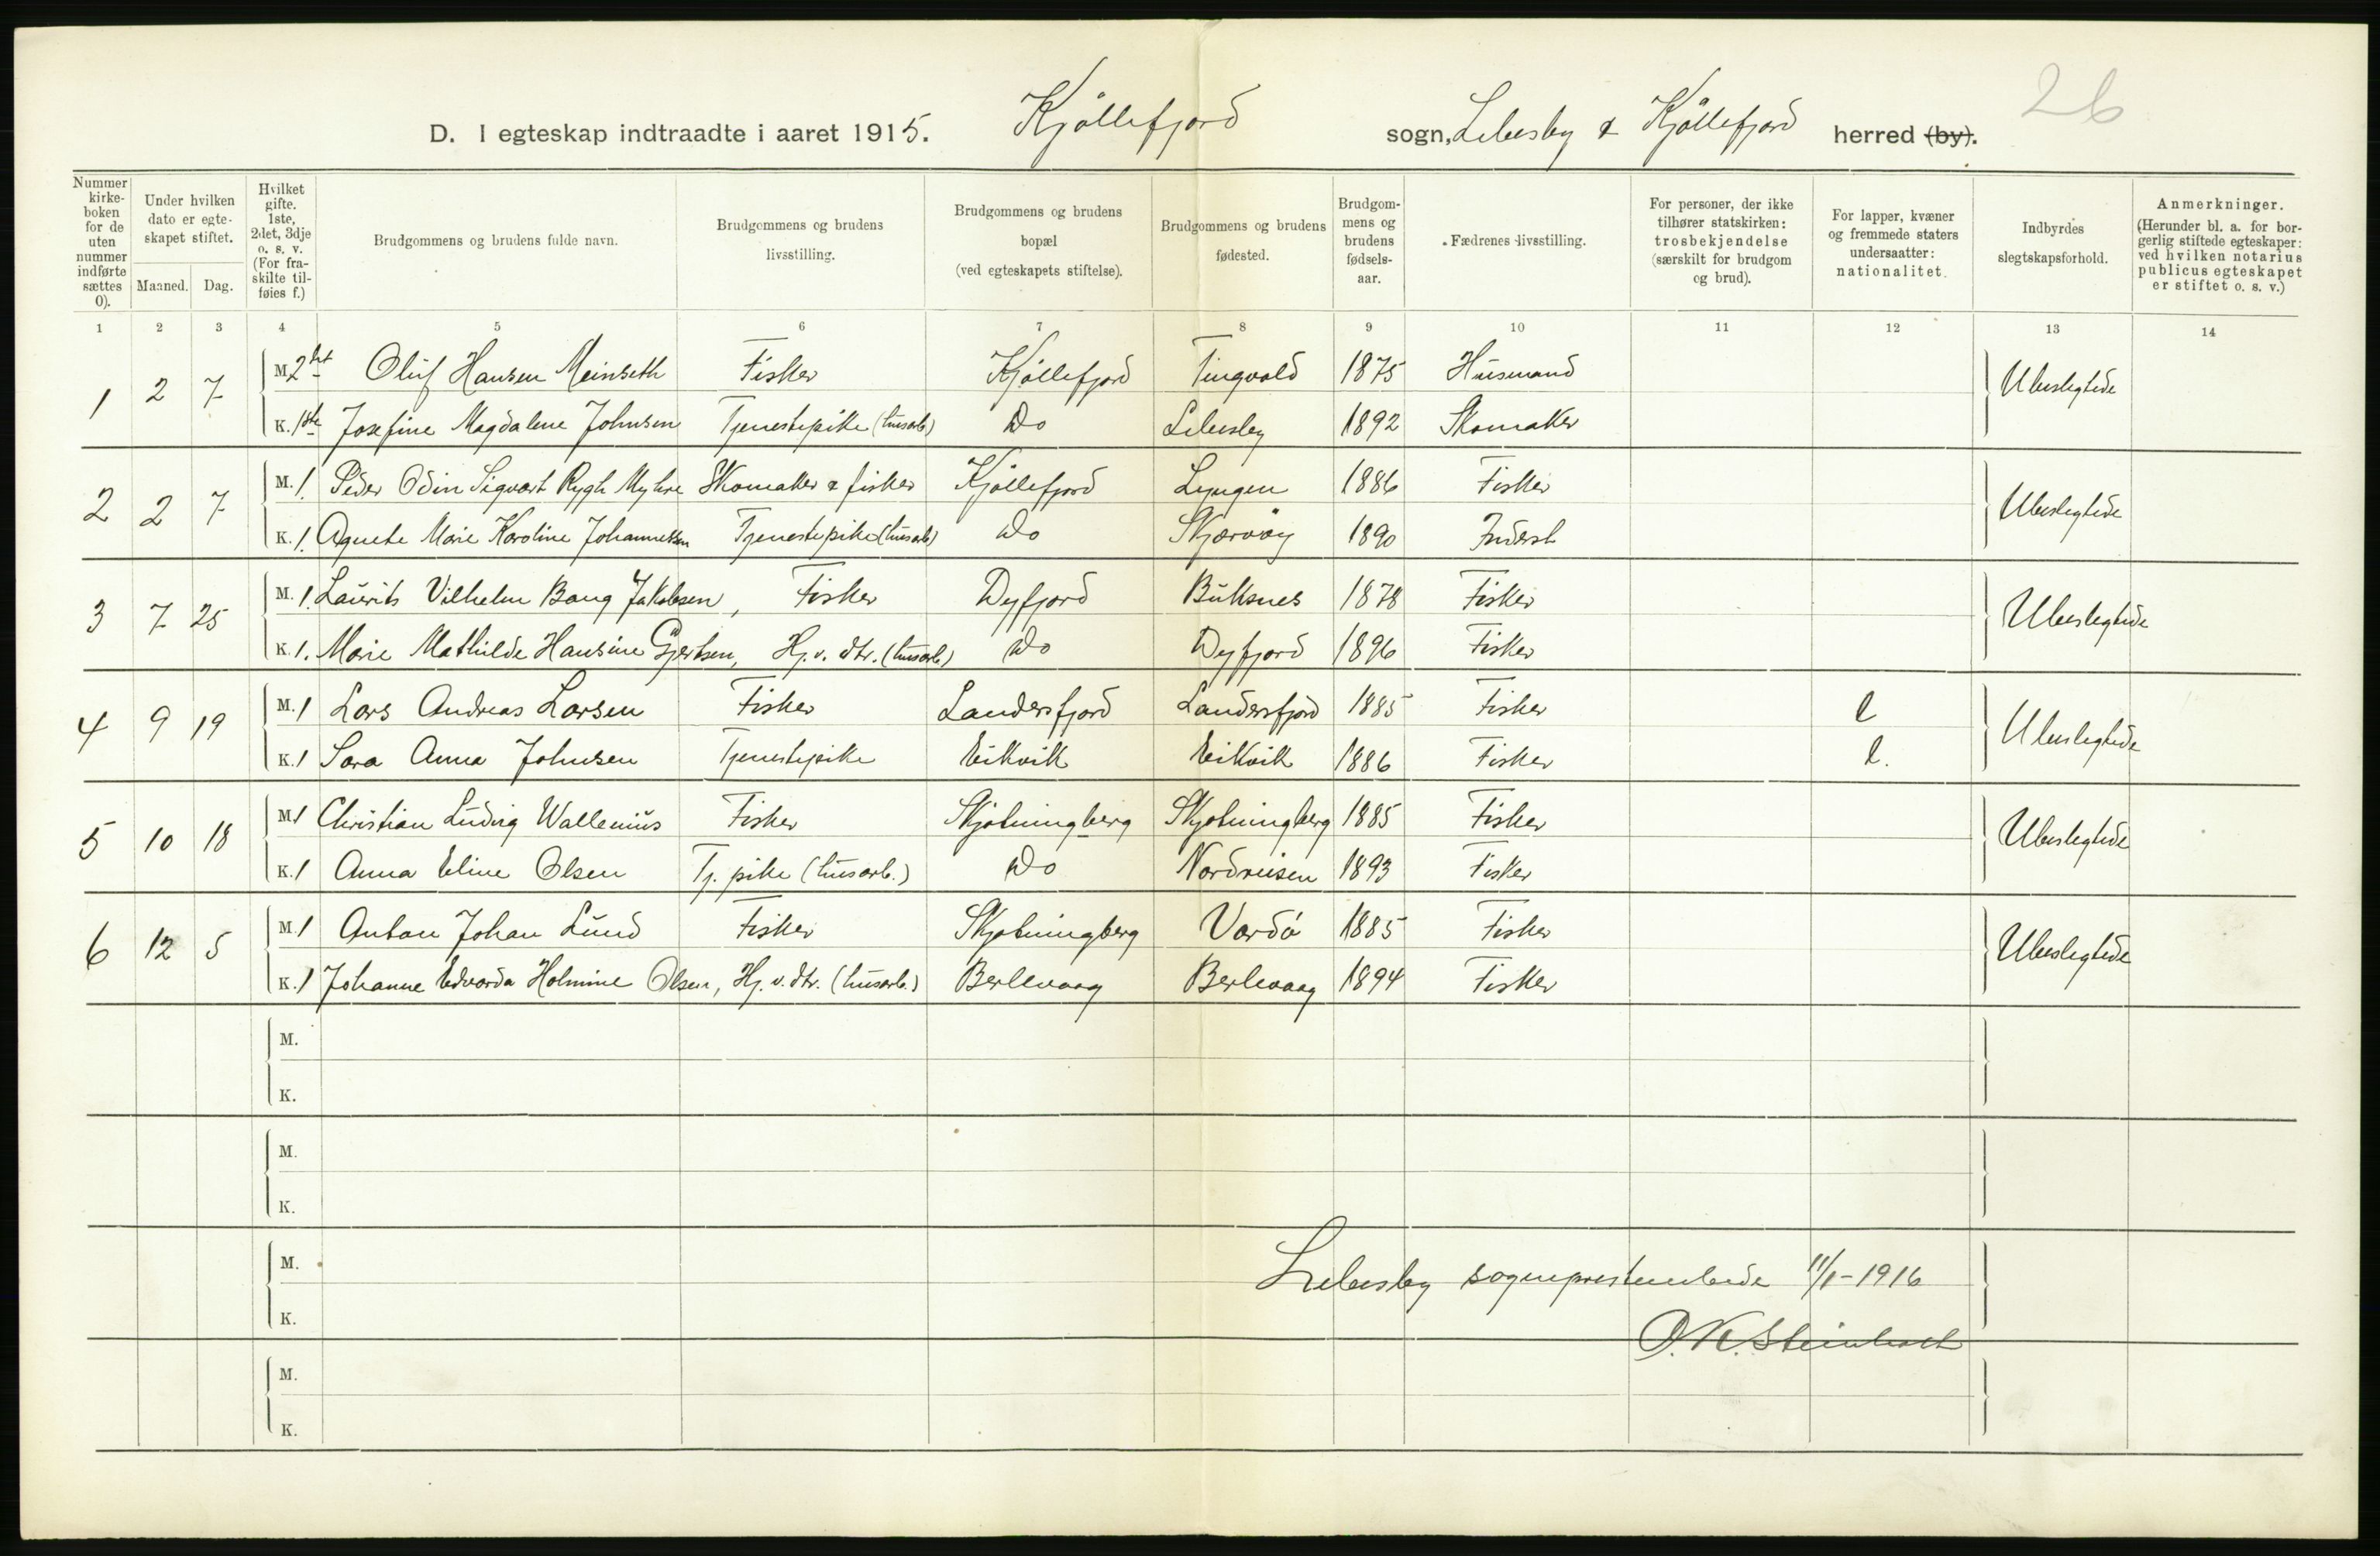 26
D. I egteskap indtraadte i aaret 1915. Kjøllefjord sogn, Lebesby & Kjøllefjord herred (by).
Nummer kirke-boken for de uten nummer indførte sættes 0). | Under hvilken dato er egte-skapet stiftet. Maaned. Dag. | Hvilket gifte. 1ste, 2det, 3dje o. s. v. (For fra-skilte til-føies f.) | Brudgommens og brudens fulde navn. | Brudgommens og brudens livsstilling. | Brudgommens og brudens bopæl (ved egteskapets stiftelse). | Brudgommens og brudens fødested. | Brudgom-mens og brudens fødsels-aar. | Fædrenes livsstilling. | For personer, der ikke tilhører statskirken: trosbekjendelse (særskilt for brudgom og brud). | For lapper, kvæner og fremmede staters undersaatter: nationalitet. | Indbyrdes slegtskapsforhold. | Anmerkninger. (Herunder bl. a. for bor-gerlig stiftede egteskaper: ved hvilken notarius publicus egteskapet er stiftet o. s. v.)
1 2 3 4 5 6 7 8 9 10 11 12 13 14
1 2 7 M. 2det Oluf Hansen Meinseth Fisker Kjøllefjord Tingvold 1875 Husmand Ubeslegtede
K. 1ste Josefine Magdalene Johnsen Tjenestepike (husarb.) Do Lebesby 1892 Skomaker
2 2 7 M. 1. Peder Odin Sigvart Rygh Myhre Skomaker & fisker Kjøllefjord Lyngen 1886 Fisker Ubeslegtede
K. 1. Agnete Marie Karoline Johannessen Tjenestepike (husarb.) Do Skjærvøy 1890 Inderst
3 7 25 M. 1. Laurits Vilhelm Bang Jakobsen, Fisker Dyfjord Buksnes 1878 Fisker Ubeslegtede
K. 1. Marie Mathilde Hansine Gjertsen, Hj. v. dtr. (husarb.) Do Dyfjord 1896 Fisker
4 9 19 M. 1 Lars Andreas Larsen Fisker Landersfjord Landersfjord 1885 Fisker l Ubeslegtede
K. 1 Sara Anna Johnsen Tjenestepike Eikvik Eikvik 1886 Fisker l.
5 10 18 M. 1 Christian Ludvig Wallenius Fisker Skjøtningberg Skjøtningberg 1885 Fisker Ubeslegtede
K. 1 Anna Eline Olsen Tj. pike (husarb.) Do Nordreisen 1893 Fisker
6 12 5 M. 1 Anton Johan Lund Fisker Skjøtningberg Vardø 1885 Fisker Ubeslegtede
K. 1 Johanne Edvarda Holmine Olsen, Hj. v. dtr. (husarb.) Berlevaag Berlevaag 1894 Fisker
M.
K.
M.
K.
M.
Lebesby sogneprestembede 11/1-1916
K.
O. K. Steinholt
M.
K.